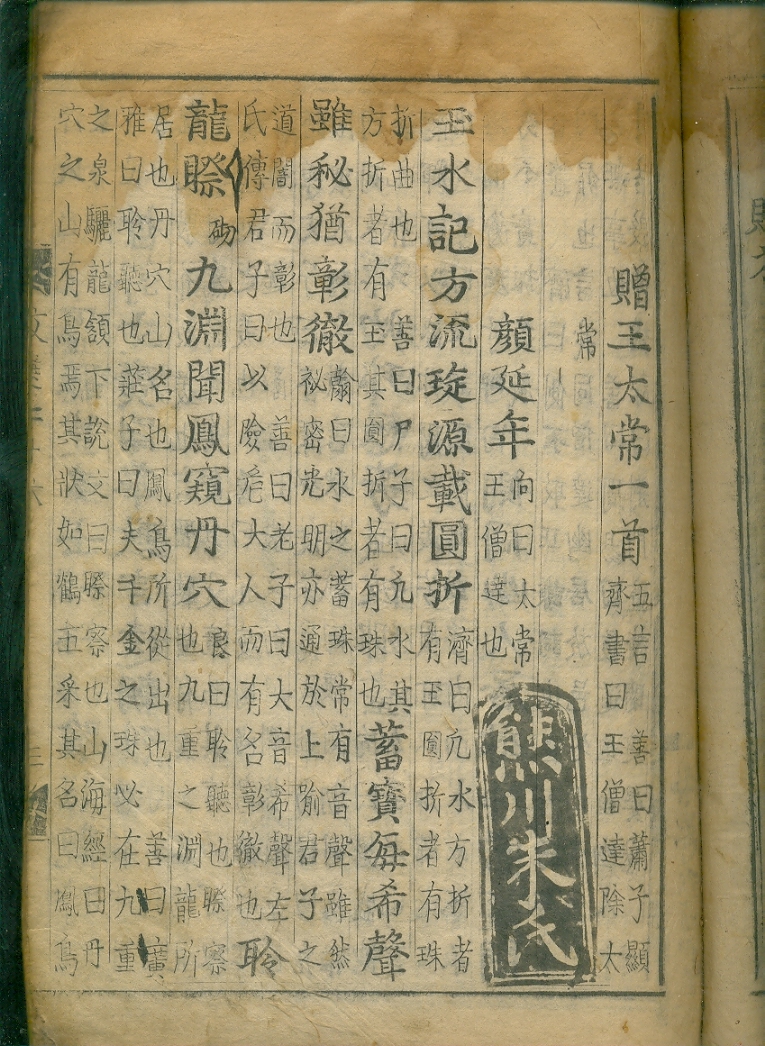 贈王太常一首
五言 善曰蕭子顯
齊書曰王僧達除太
常
顔延年
向曰太常
王僧達也
熊川朱氏
玉水記方流琁源載圓折
濟曰凢水方折者
有玉圓折者有珠
折曲也 善曰尸子曰凢水其
方折者有玉其圓折者有珠也
蓄寶每希聲
雖秘猶彰徹
翰曰水之蓄珠常有音聲雖然
祕密光明亦通於上喻君子之
道闇而彰也 善曰老子曰大音希聲左
氏傳君子曰以險危大人而有名彰徹也
聆
龍䁽
砌
九淵聞鳳窺丹穴
良曰聆聽也䁽察
也九重之淵龍所
居也丹穴山名也鳳鳥所從出也 善曰廣
雅曰聆聽也莊子曰夫千金之珠必在九重
之泉驪龍頷下說文曰䁽察也山海經曰丹
穴之山有鳥焉其狀如鶴五釆其名曰鳳鳥